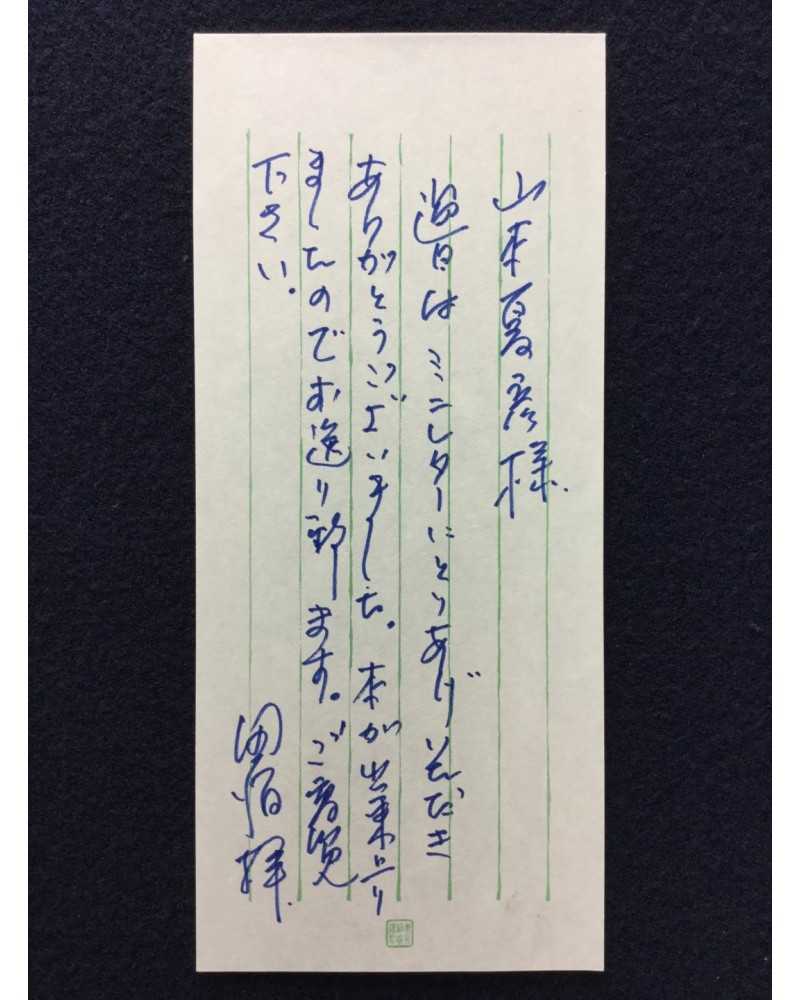 山本夏彦様
過日はミニレターにとりあげいただき
ありがとうございました。本が出来上り
ましたのでお送り致します。ご高覧
下さい。
拝